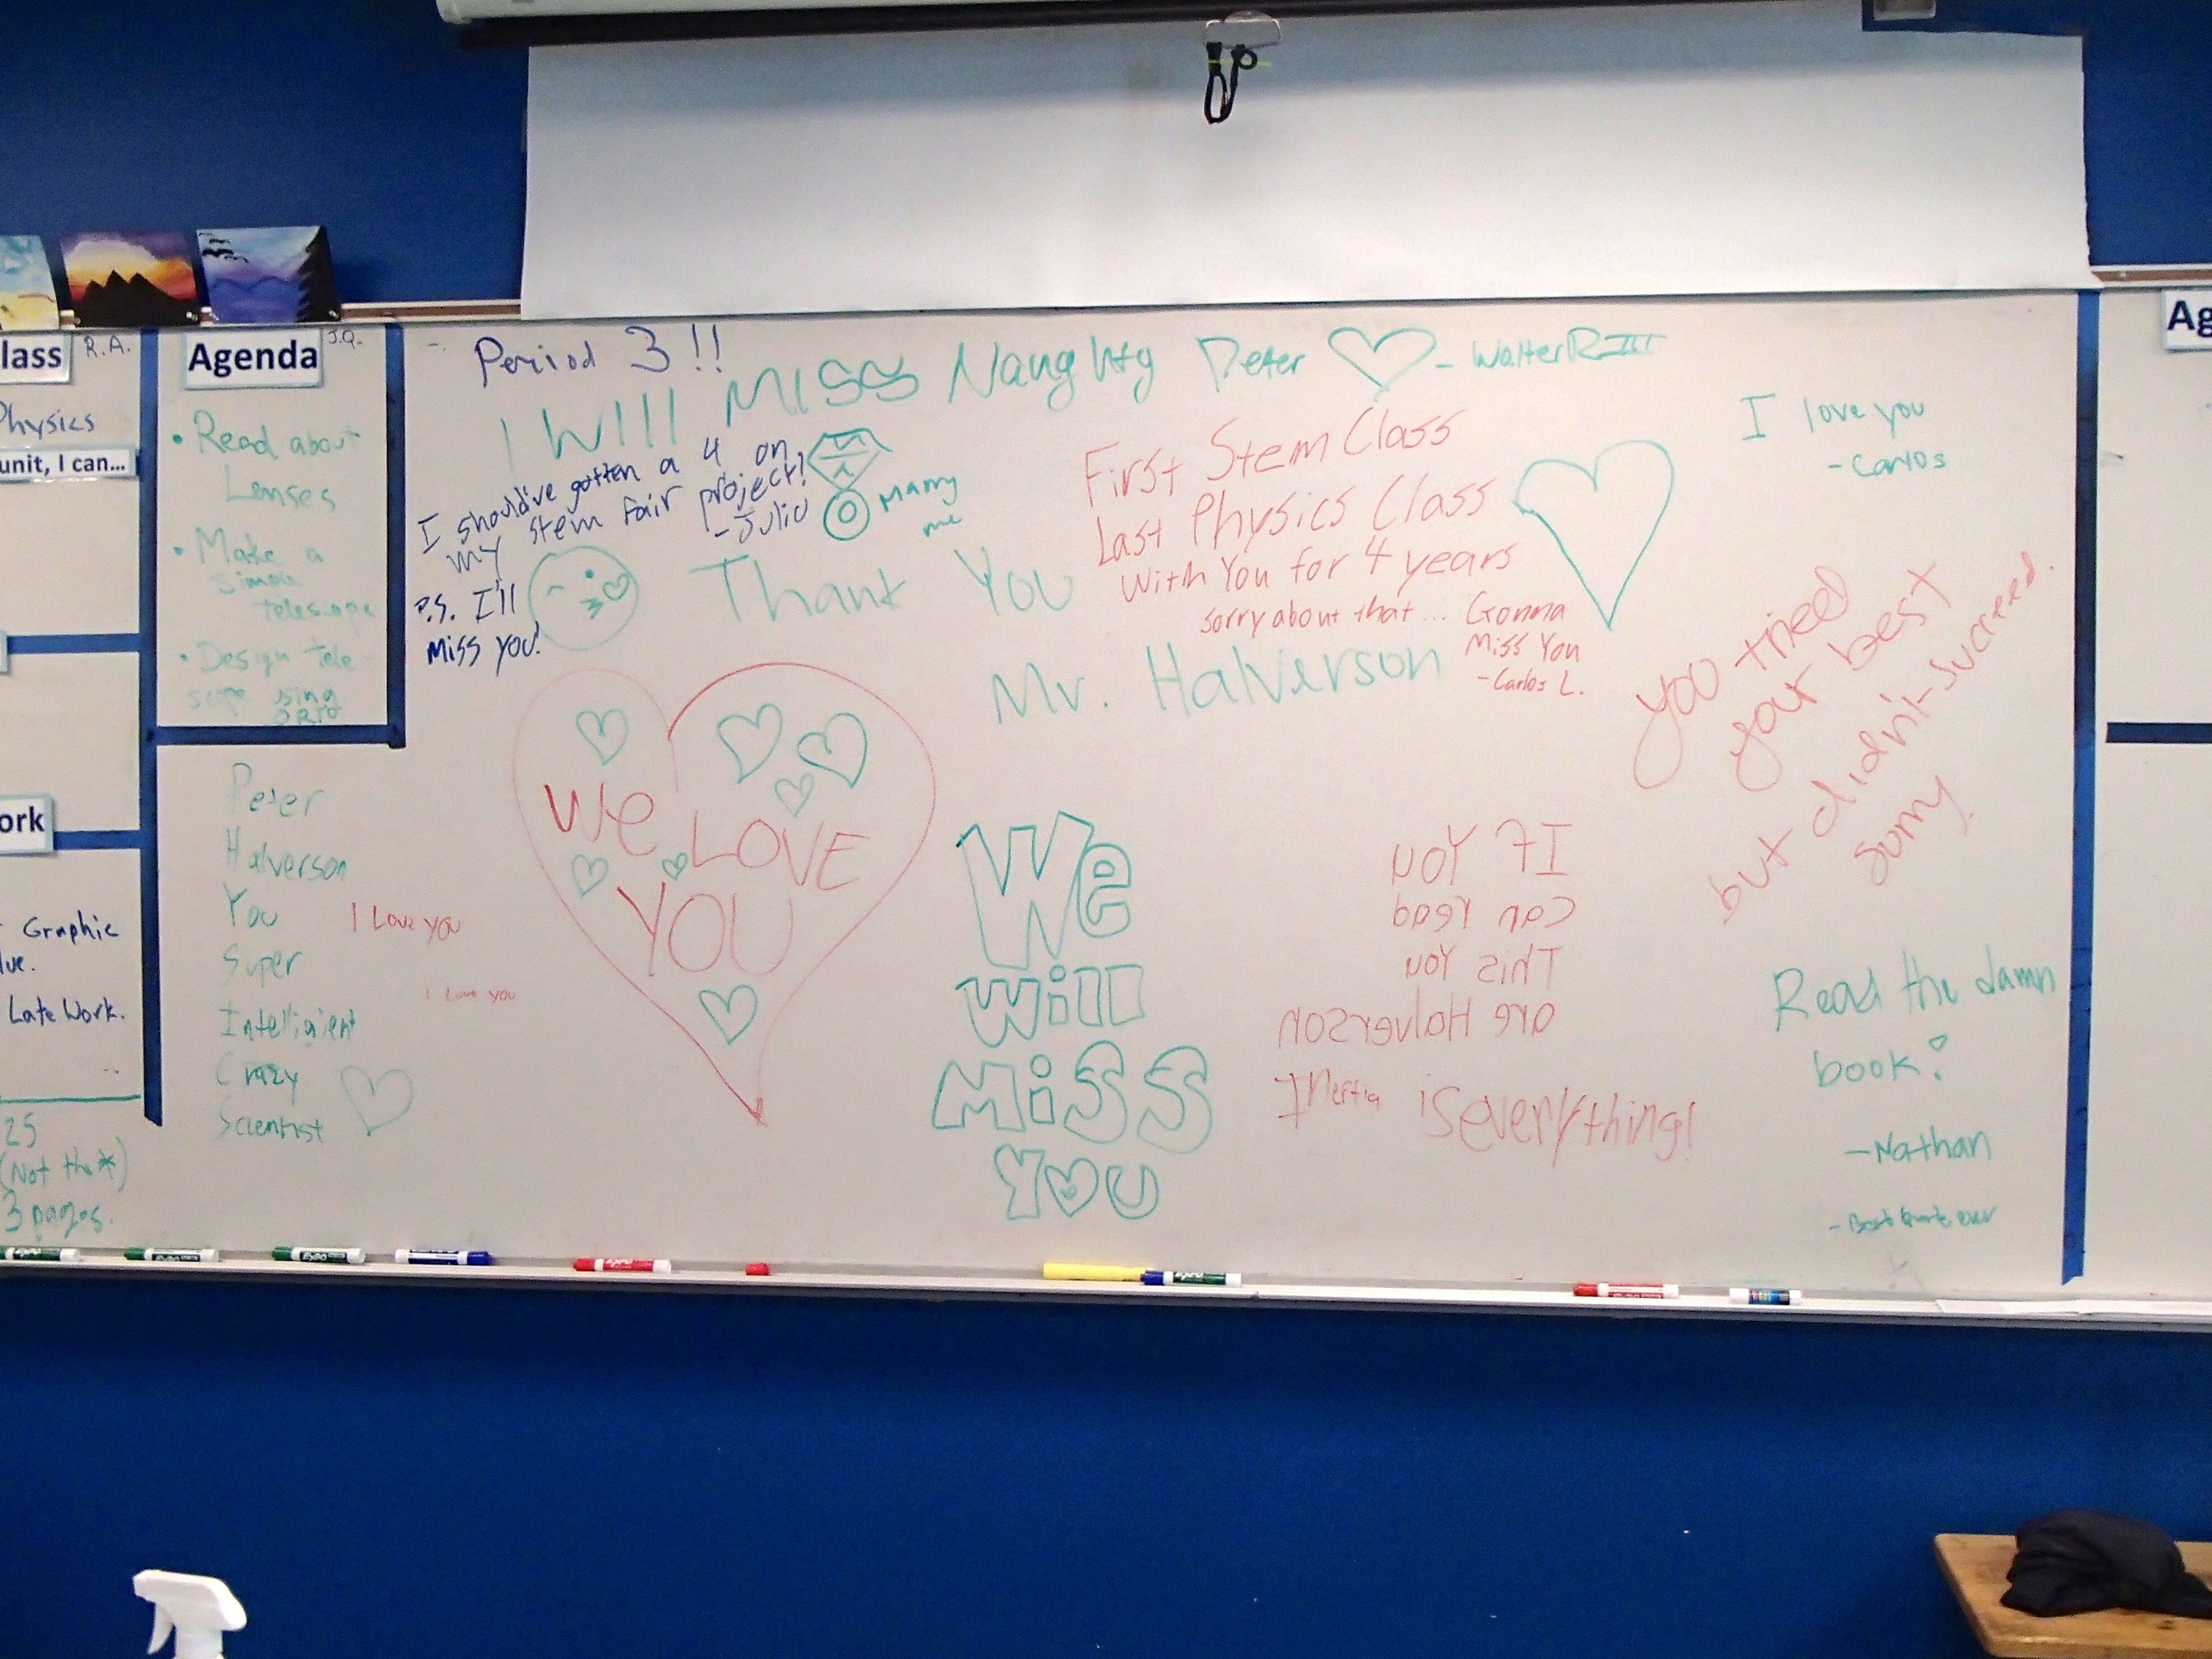 lass R.A.
Physics
unit, I can...
ork
Graphic
lue.
Late Work.
25
(Not the *)
3 pages.
Agenda J.Q.
• Read about
Lenses
• Make a
simple
telescope
• Design tele
scope using
Peter
Halverson
You
Super
Intelligient
Crazy
Scientist
I Love you
I Love you
Period 3!!
I Will MISS Naughty Peter - Walter R III
I should've gotten a 4 on
my stem fair project!
- Julio
P.S. I'll
Miss you!
Marry
me
Thank You
Mr. Halverson
First Stem Class
Last Physics Class
With You for 4 years
Sorry about that... Gonna
Miss You
- Carlos L.
I love you
- Carlos
you tried
your best
but didn't succeed.
Sorry.
We LOVE
YOU
We
Will
MiSS
YOU
If You
Can read
This You
are Halverson
Inertia is everything!
Read the damn
book!
- Nathan
- Best quote ever
Ag